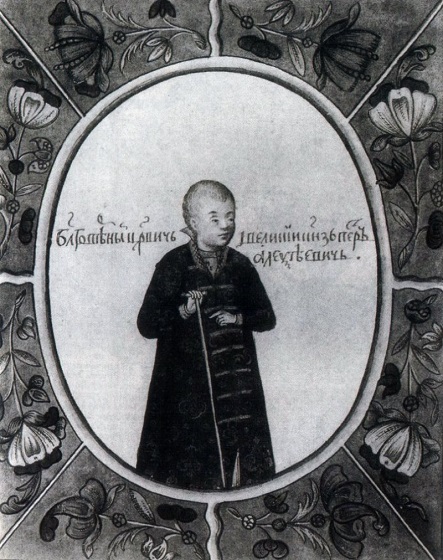 Бл҃говѣрныи цр҃вичь і великии кн҃зь петръ
алеѯѣевичь.